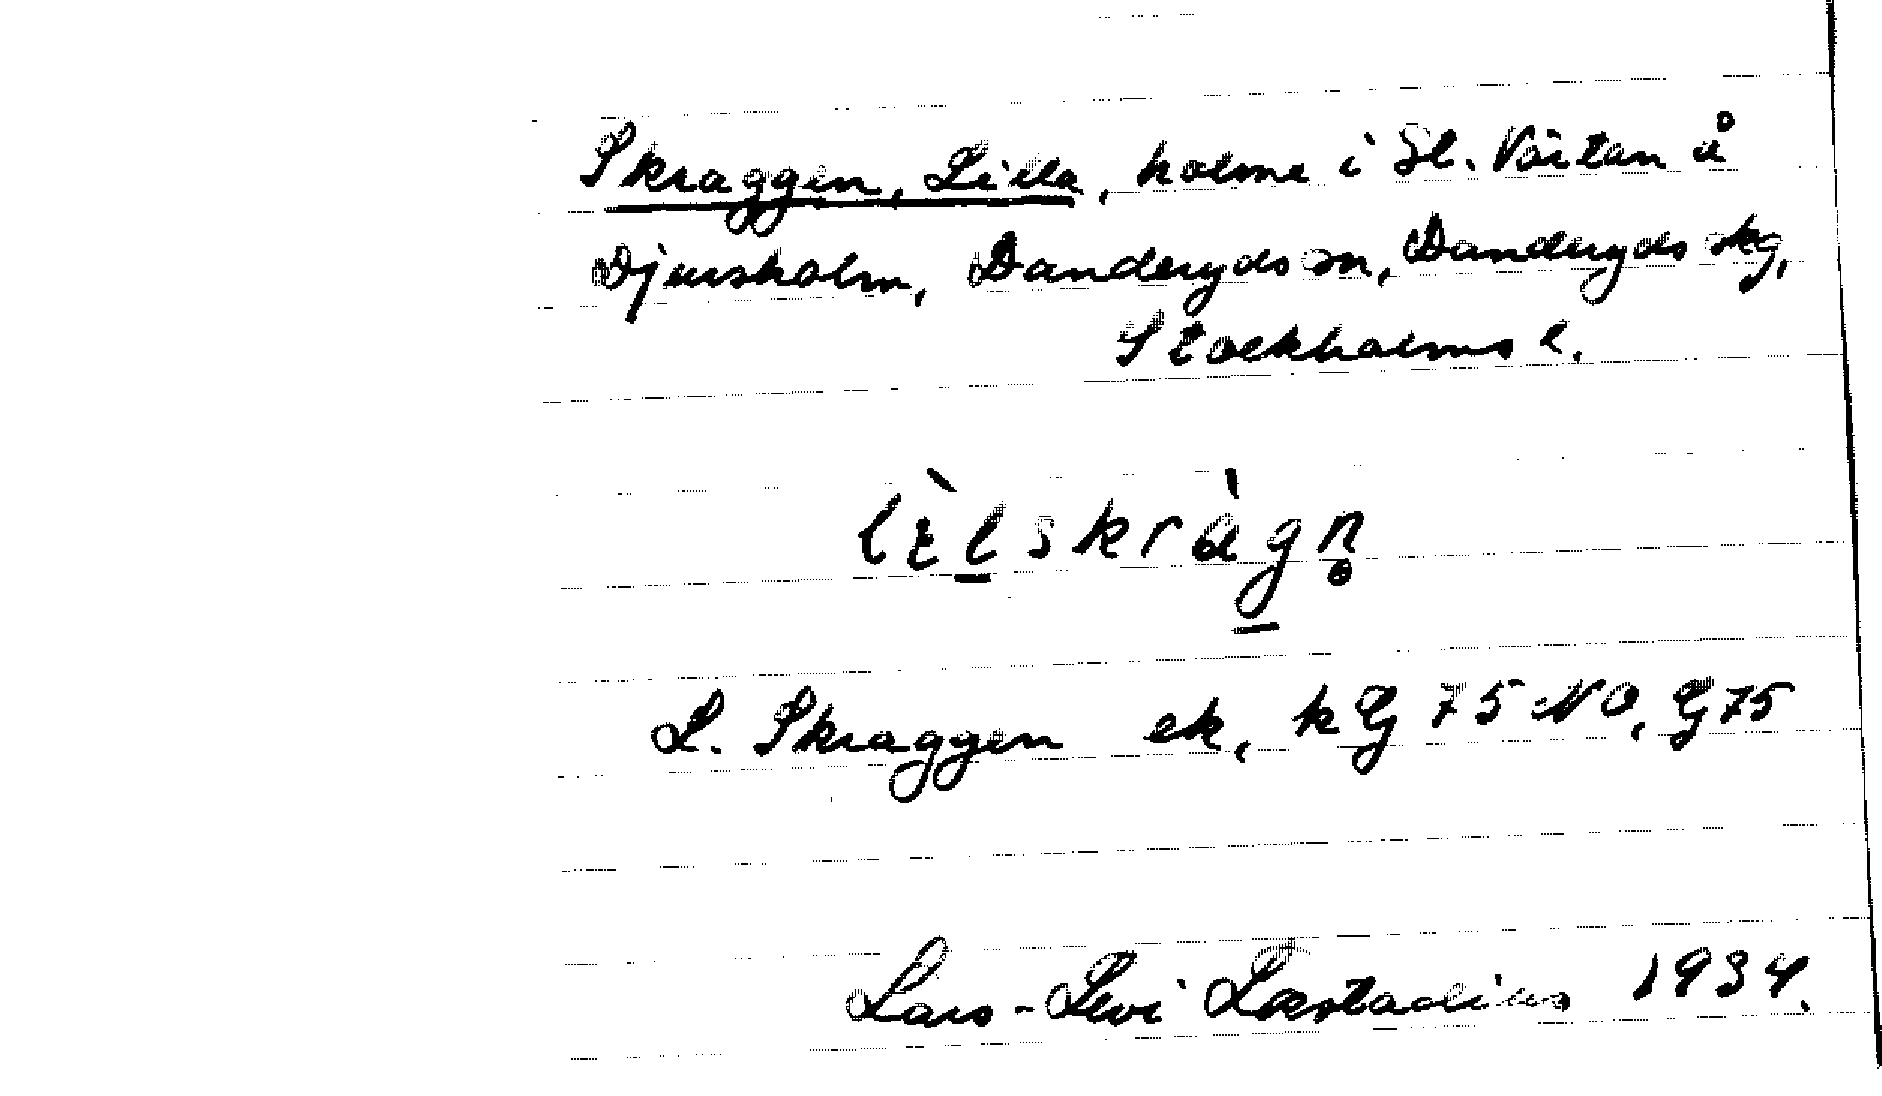 Skraggen, Lilla, holme i St. Värtan å
Djursholm, Danderyds sn, Danderyds skg,
Stockholms l.
lɪ̀lskràgn̥
L. Skraggen ek, kGJ 75 NO, GJ 75
Lars-Levi Læstadius 1934.